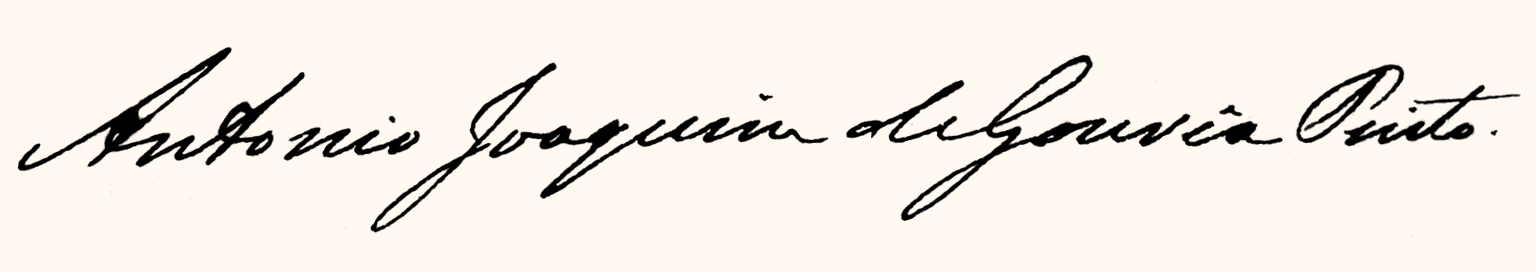 Antonio Joaquim de Gouvêa Pinto.